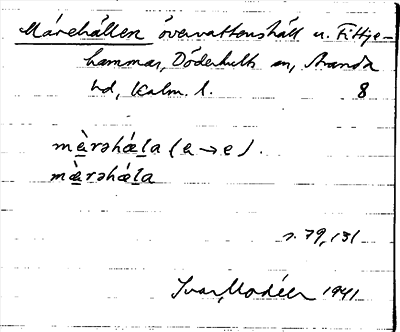 Mårehällen övervattenshäll n. Fittje-
hammar, Döderhults sn, Stranda
hd, Kalm. l. 8
mɑ̀rəhǽla (e→e).
mɑ̀rəhǽla
s. 79, 131
Ivar Modéer 1941